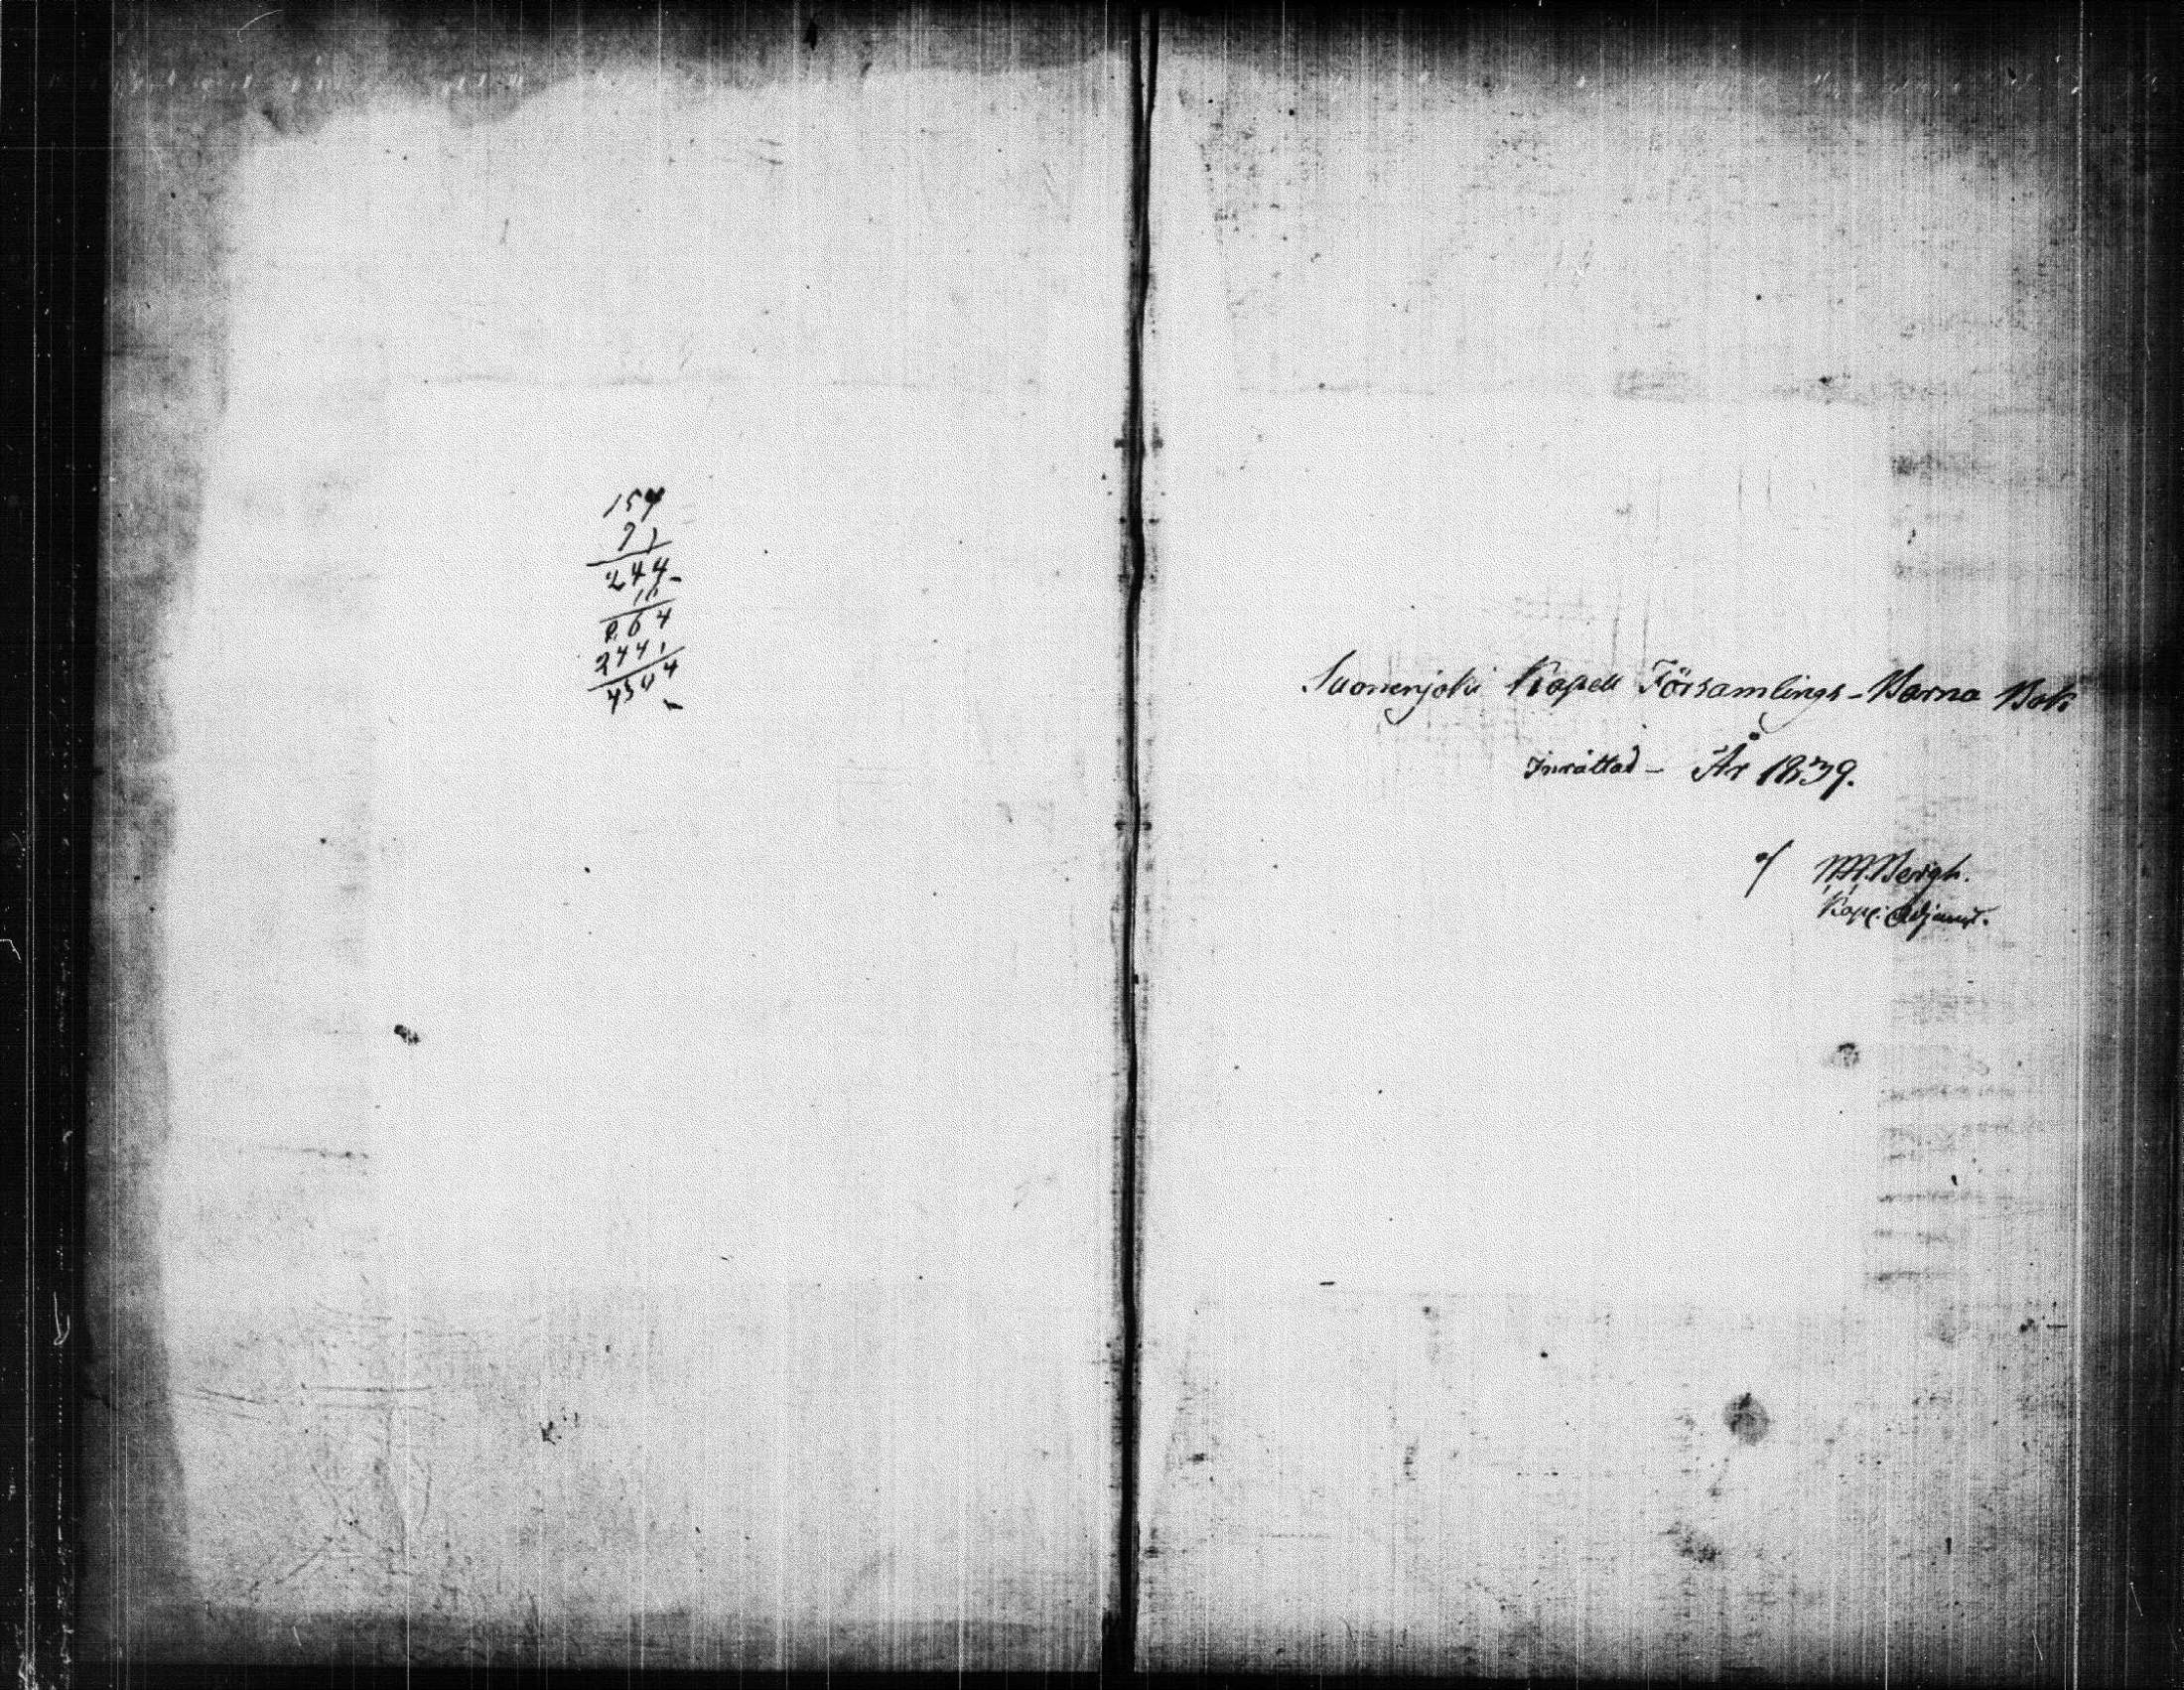 154
244
2441
Suonenjoki Kapell Församlings-Barna Bok
Inrättad - År 1839.
af Bergh.
Kap: Adjunct.